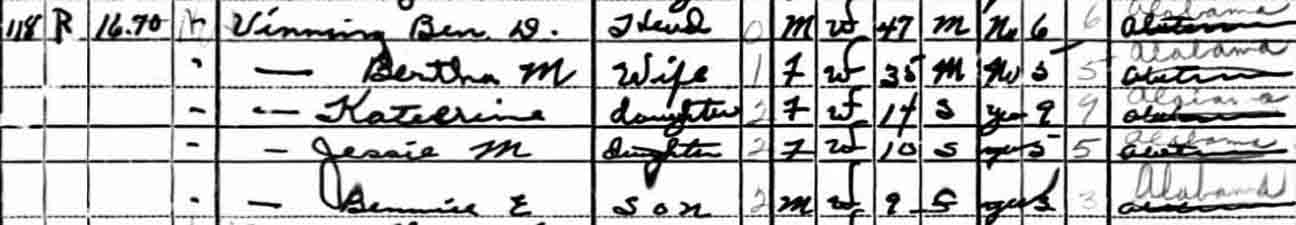 118 R 16.70 Vinning Ben. D. Head 0 M W 47 M No 6 6 Alabama
— Bertha M Wife 1 F W 35 M No 5 5 Alabama
— Kateerine daughter 2 F W 14 S yes 9 9
— Jessie M daughter 2 F W 10 S yes 5 5 Alabama
— Bennie E Son 2 M W 9 S yes 3 3 Alabama